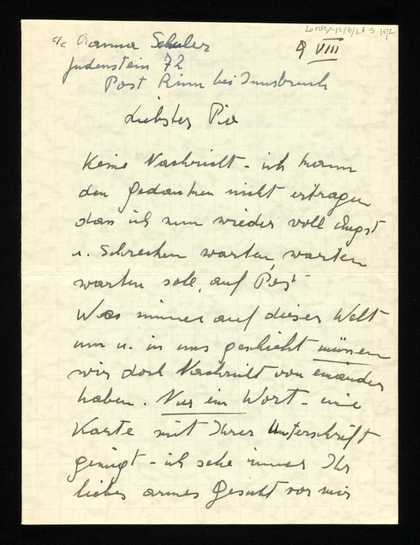 c/c Hanna Schuler
Judenstein 72
Post Rinn bei Innsbruck
9 VIII
Liebster Pia
Keine Nachricht - ich kann
den Gedanken nicht ertragen
dass ich nun wieder voll Angst
u. Schrecken warten, warten
warten soll, auf Post
Was immer auf dieser Welt
um u. in uns geschieht müssen
wir doch Nachricht von einander
haben. Nur ein Wort - eine
Karte mit Ihrer Unterschrift
genügt - ich sehe immer Ihr
liebes armes Gesicht vor mir